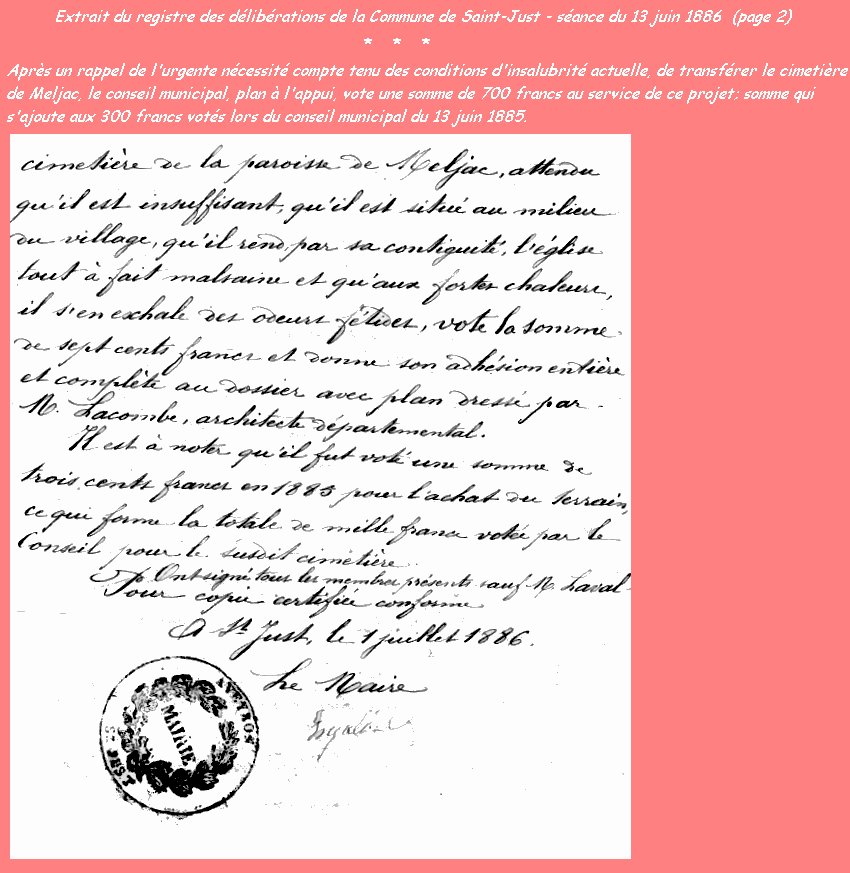 Extrait du registre des délibérations de la Commune de Saint-Just - séance du 13 juin 1886 (page 2)
* * *
Après un rappel de l'urgente nécessité compte tenu des conditions d'insalubrité actuelle, de transférer le cimetière
de Meljac, le conseil municipal, plan à l'appui, vote une somme de 700 francs au service de ce projet; somme qui
s'ajoute aux 300 francs votés lors du conseil municipal du 13 juin 1885.
cimetière de la paroisse de Meljac, attendu
qu'il est insuffisant, qu'il est situé au milieu
du village, qu'il rend, par sa contiguité, l'église
tout à fait malsaine et qu'aux fortes chaleurs,
il s'en exhale des odeurs fétides, vote la somme
de sept cents francs et donne son adhésion entière
et complète au dossier avec plan dressé par
M. Lacombe, architecte départemental.
Il est à noter qu'il fut voté une somme de
trois cents francs en 1885 pour l'achat du terrain,
ce qui forme la totale de mille francs votée par le
Conseil pour le susdit cimétière.
Ont signé tous les membres présents sauf M. Laval
Pour copie certifiée conforme
A St Just, le 1 juillet 1886.
Le Maire
AVEYRON
MAIRIE
ST JUST